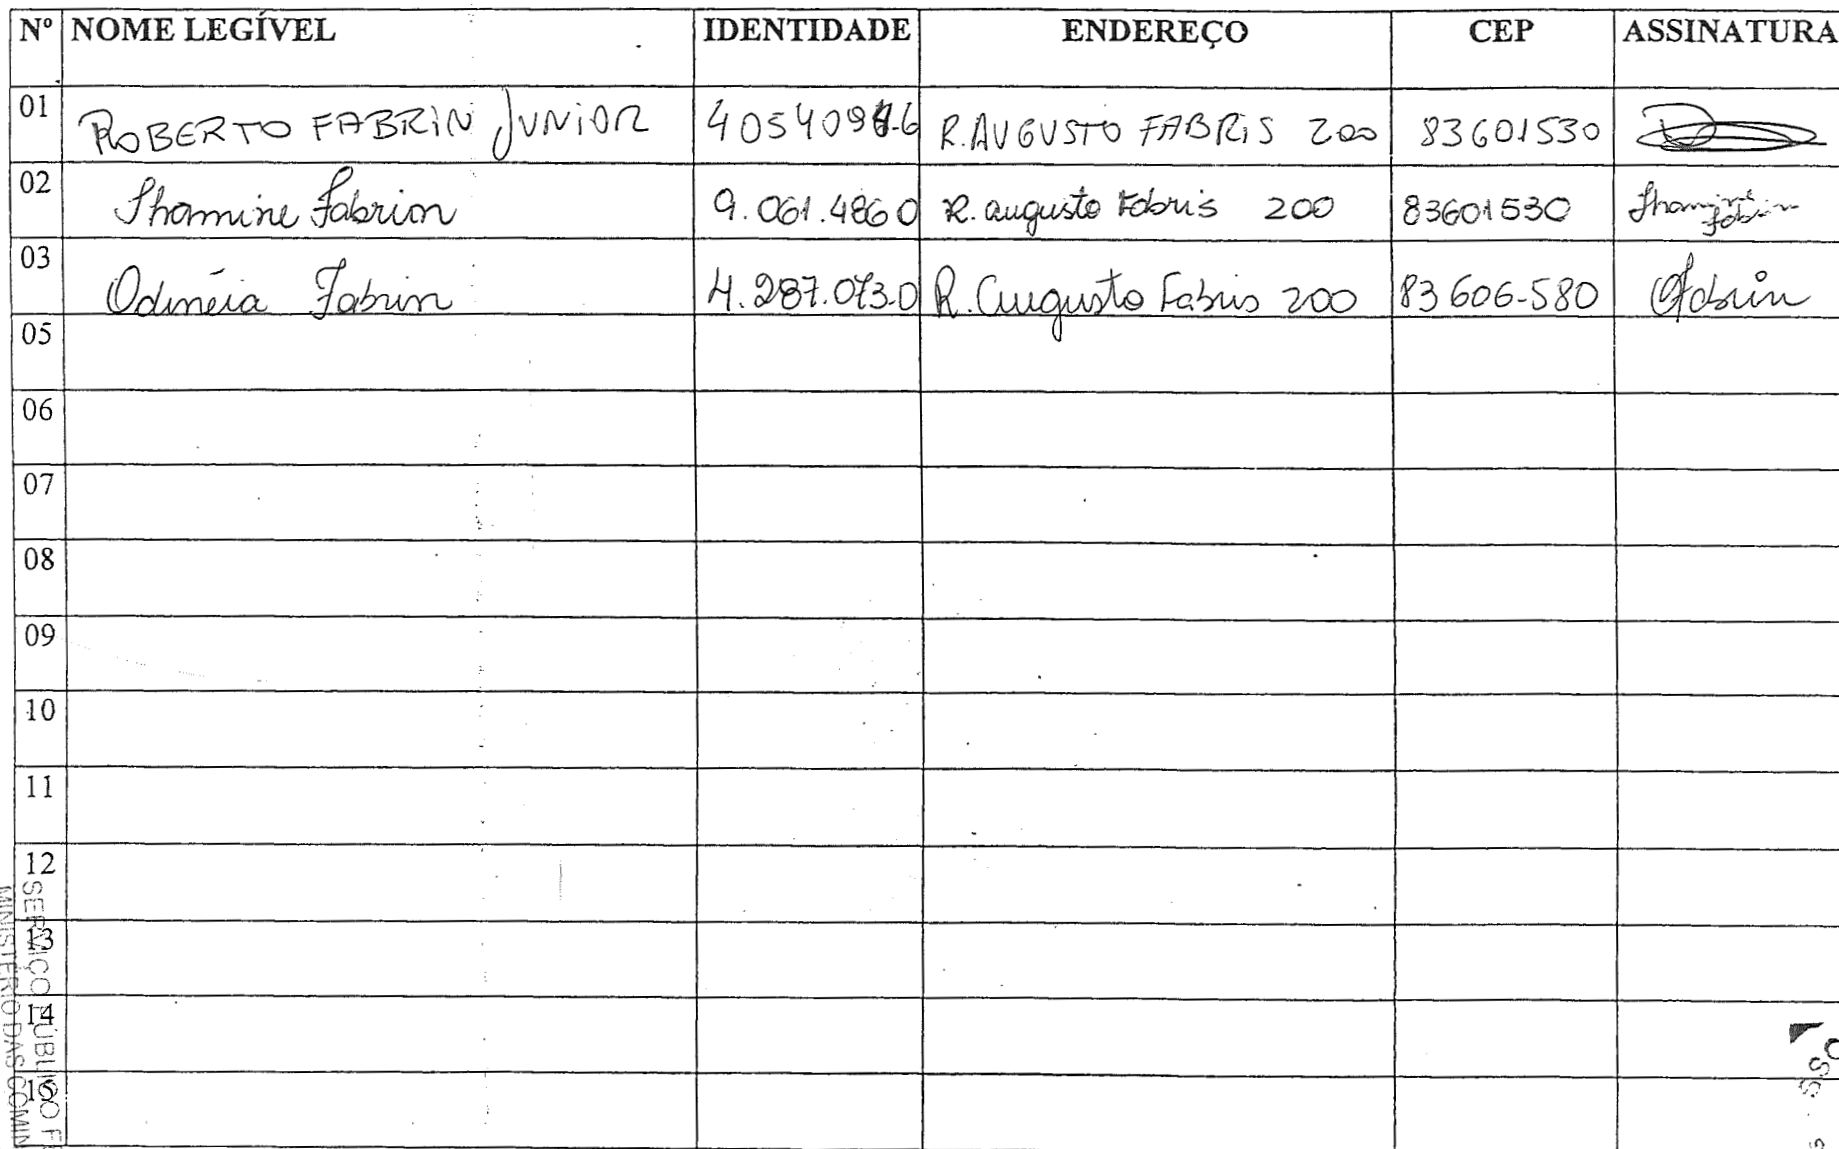 Nº NOME LEGÍVEL IDENTIDADE ENDEREÇO CEP ASSINATURA
01 ROBERTO FABRIN JUNIOR R. AUGUSTO FABRIS 200 83601530
02 Thamine Fabrin 9.061.486 0 R. augusto Fabris 200 83601530 Thamine Fabrin
03 Odinéia Fabrin 4.287.073.0 R. Augusto Fabris 200 83 606-580 OFabrin
05
06
07
08
09
10
11
12
13
14
15
SERVIÇO PÚBLICO
MINISTÉRIO DAS COMUN